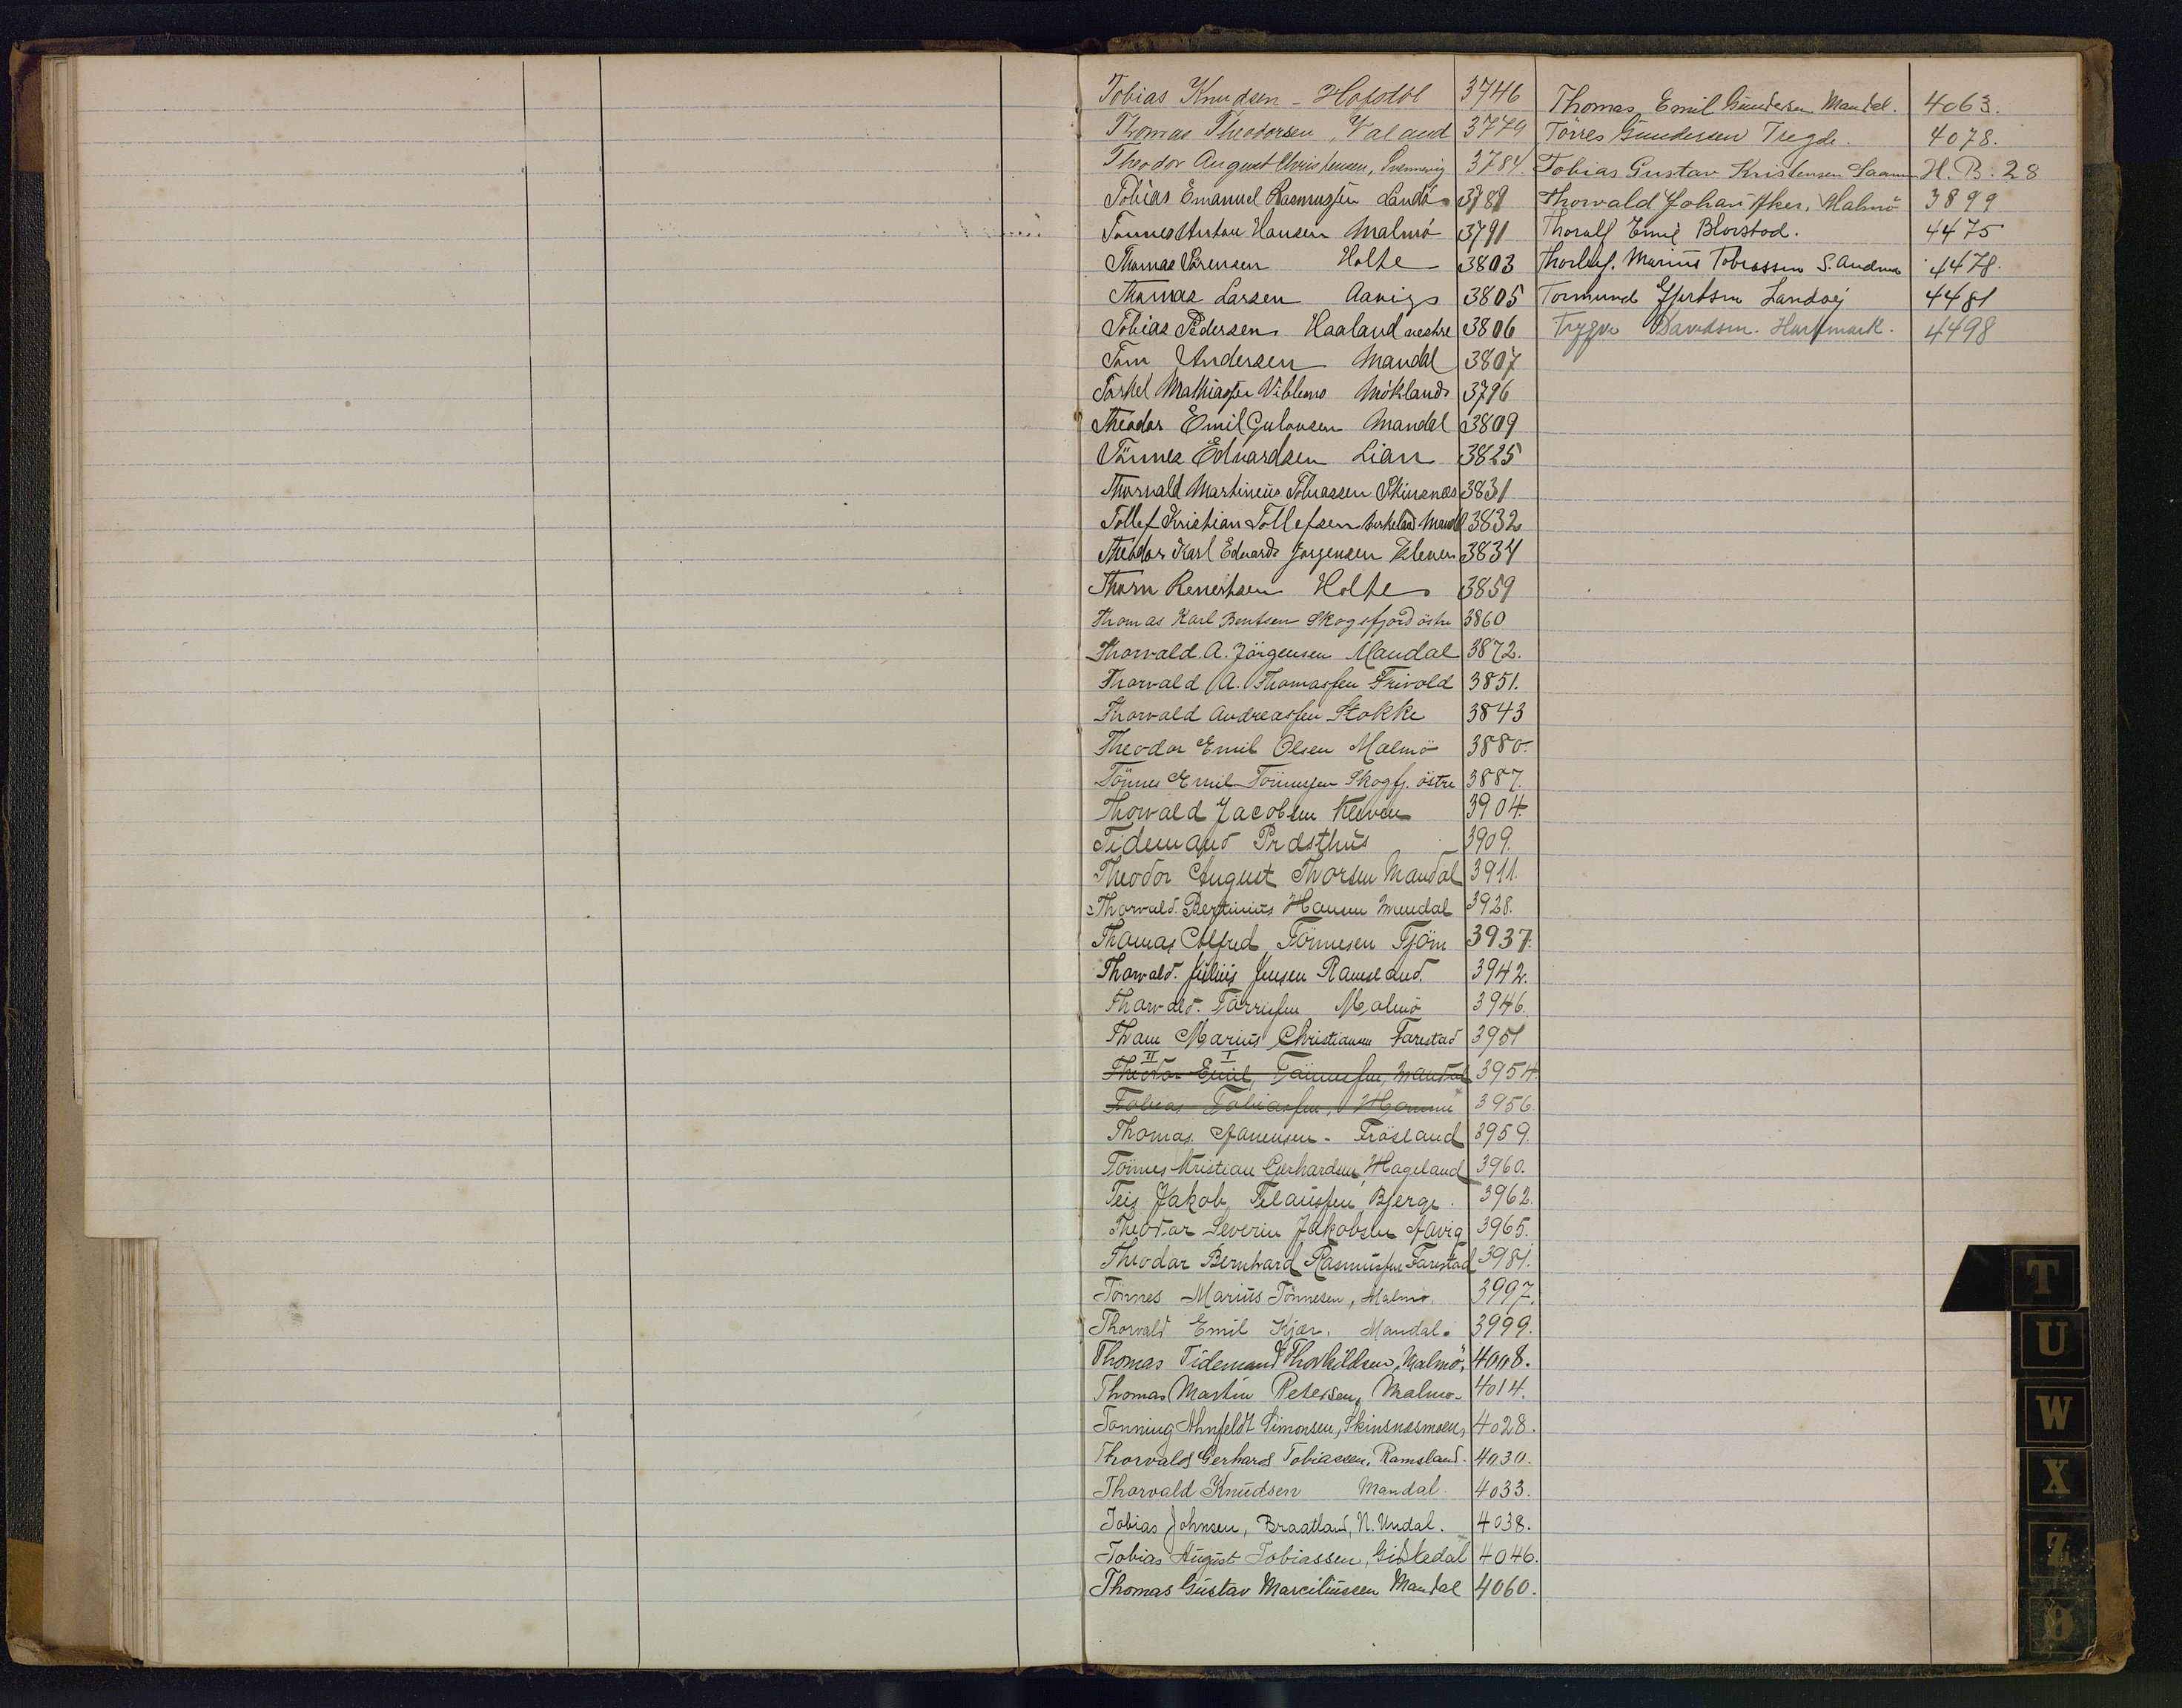 Tobias Knudsen - Hofstöl 3746
Thomas Theodorsen, Valand 3779
Theodor August Christensen, Svennevig 3784.
Tobias Emanuel Rasmussen Landö 3789
Tönnes Anton Hansen Malmö 3791
Thomas Sørensen Holte 3803
Thomas Larsen Aavigs 3805
Tobias Pedersen Haaland vestre 3806
Tom Andersen Mandal 3807
Torkel Mathiassen Viblemo Möklands 3796
Theodor Emil Gulovsen Mandal 3809
Tönnes Edvardsen Lian 3825
Thorvald Martinius Tobiassen Skinsnæs 3831
Tollef Kristian Tollefsen Birkeland Mandal 3832
Theodor Karl Edvard Jørgensen Kleven 3834
Thorn Reiersen Holte 3859
Thomas Karl Bentsen Skogsfjord östre 3860
Thorvald. A. Jörgensen Mandal 3872.
Thorvald A. Thomassen Frivold 3851.
Thorvald Andreassen Stokke 3843
Theodor Emil Olsen Malmö 3880.
Tönnes Emil Tönnesen Skogfj. östre 3887.
Thorvald Jacobsen Kleven 3904.
Tidemand Præsthus 3909.
Theodor August Thorsen Mandal 3911.
Thorvald. Bertinius Hansen Mandal 3928.
Thomas Alfred Tönnesen Tjöm 3937.
Thorvald. Julius Jensen Ramsland. 3942.
Thorvald. Törrisen Malmö 3946.
Thom Marius Christiansen Farestad 3951
II I
Theodor Emil, Tönnessen, Mandal 3954.
Tobias Tobiassen, Hamre 3956.
Thomas Aanensen - Fröseland 3959.
Tönnes Kristian Gerhardsen, Hageland 3960.
Teis Jakob, Bjerge. 3962.
Theodor Severin Jakobsen Aavig 3965.
Theodor Bernhard Rasmussen Farestad 3981.
Tönnes Marius Tönnesen, Malmö. 3997.
Thorvald Emil Kjær. Mandal. 3999.
Thomas Tidemand Thorkildsen, Malmö. 4008.
Thomas Martin Petersen, Malmö. 4014.
Tonning Ahnfeldt Simonsen, Skinsnesmoen, 4028.
Thorvald Gerhard Tobiassen. Ramsland. 4030.
Thorvald Knudsen Mandal. 4033.
Tobias Johnsen, Braatland, N. Undal. 4038.
Tobias August Tobiassen, Gisledal 4046.
Thomas Gustav Marciliussen Mandal 4060.
Thomas Emil Gundersen Mandal. 4063.
Törres Gundersen Tregde. 4078.
Tobias Gustav Kristensen Saanum H.B. 28
Thorvald Johan Aker, Malmö 3899
Thoralf Emil Blørstad. 4475
Thorleif. Marius Tobiassen S. Audnes 4478.
Tormund Gjertsen Landøy 4481
Trygve Davidsen. Hartmark. 4498
T
U
W
X
Z
Ø